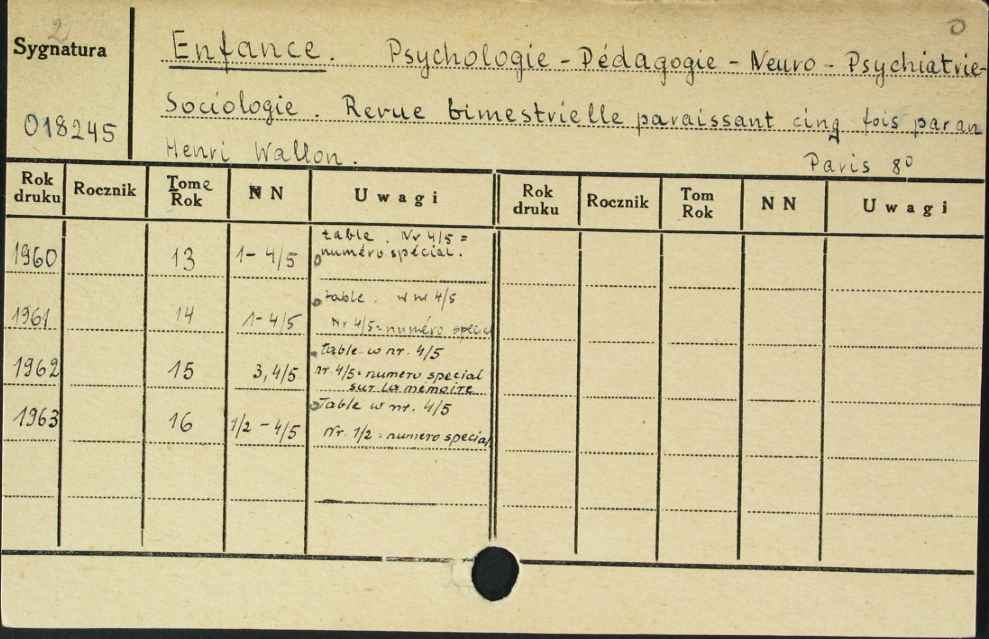 2
0
Sygnatura
Enfance. Psychologie - Pédagogie - Neuro - Psychiatrie-
Sociologie. Revue bimestrielle paraissant cinq fois par an
018245
Henri Wallon.
Paris 8°
Rok druku Rocznik Tome Rok N N Uwagi Rok druku Rocznik Tom Rok N N Uwagi
1960 13 1-4/5 table. Nr 4/5 =
numéro spécial.
1961 14 1-4/5 table. w nr 4/5
Nr 4/5 = numéro spécial
1962 15 3, 4/5 table w nr. 4/5
nr 4/5 = numero special
sur la mémoire
1963 16 1/2 - 4/5 Table w nr. 4/5
Nr. 1/2 = numero special